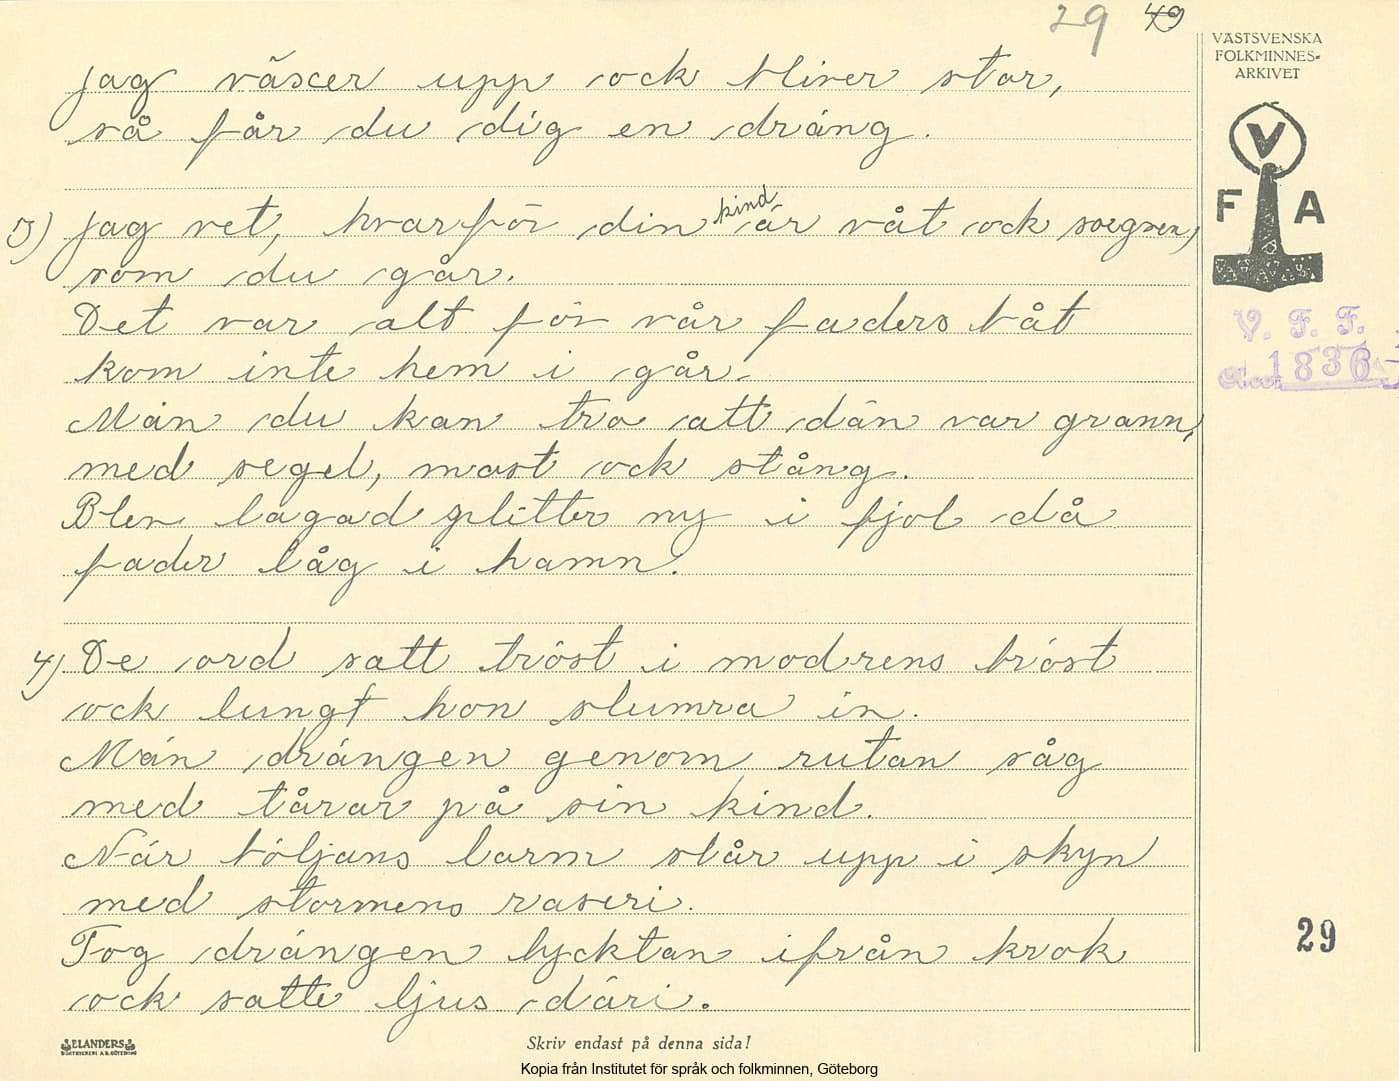 29 49
VÄSTSVENSKA
FOLKMINNES-
ARKIVET
V
F A
V. F. F.
1836
jag växer upp ock bliver stor,
så får du dig en dräng.
3) Jag vet, hvarför din kind är våt ock
som du går.
Det var alt för vår faders båt
kom inte hem i går.
Män du kan tro att dän var grann,
med segel, mast ock stång.
Blev lagad splitter ny i fjol då
fader låg i hamn.
4) De ord satt tröst i modrens bröst
ock lungt hon slumra in.
Män drängen genom rutan såg
med tårar på sin kind.
När böljans larm slår upp i skyn
med stormens raseri.
Tog drängen lycktan ifrån krok
ock satte ljus däri.
29
ELANDERS
BOKTRYCKERI A.B. GÖTEBORG
Skriv endast på denna sida!
Kopia från Institutet för språk och folkminnen, Göteborg